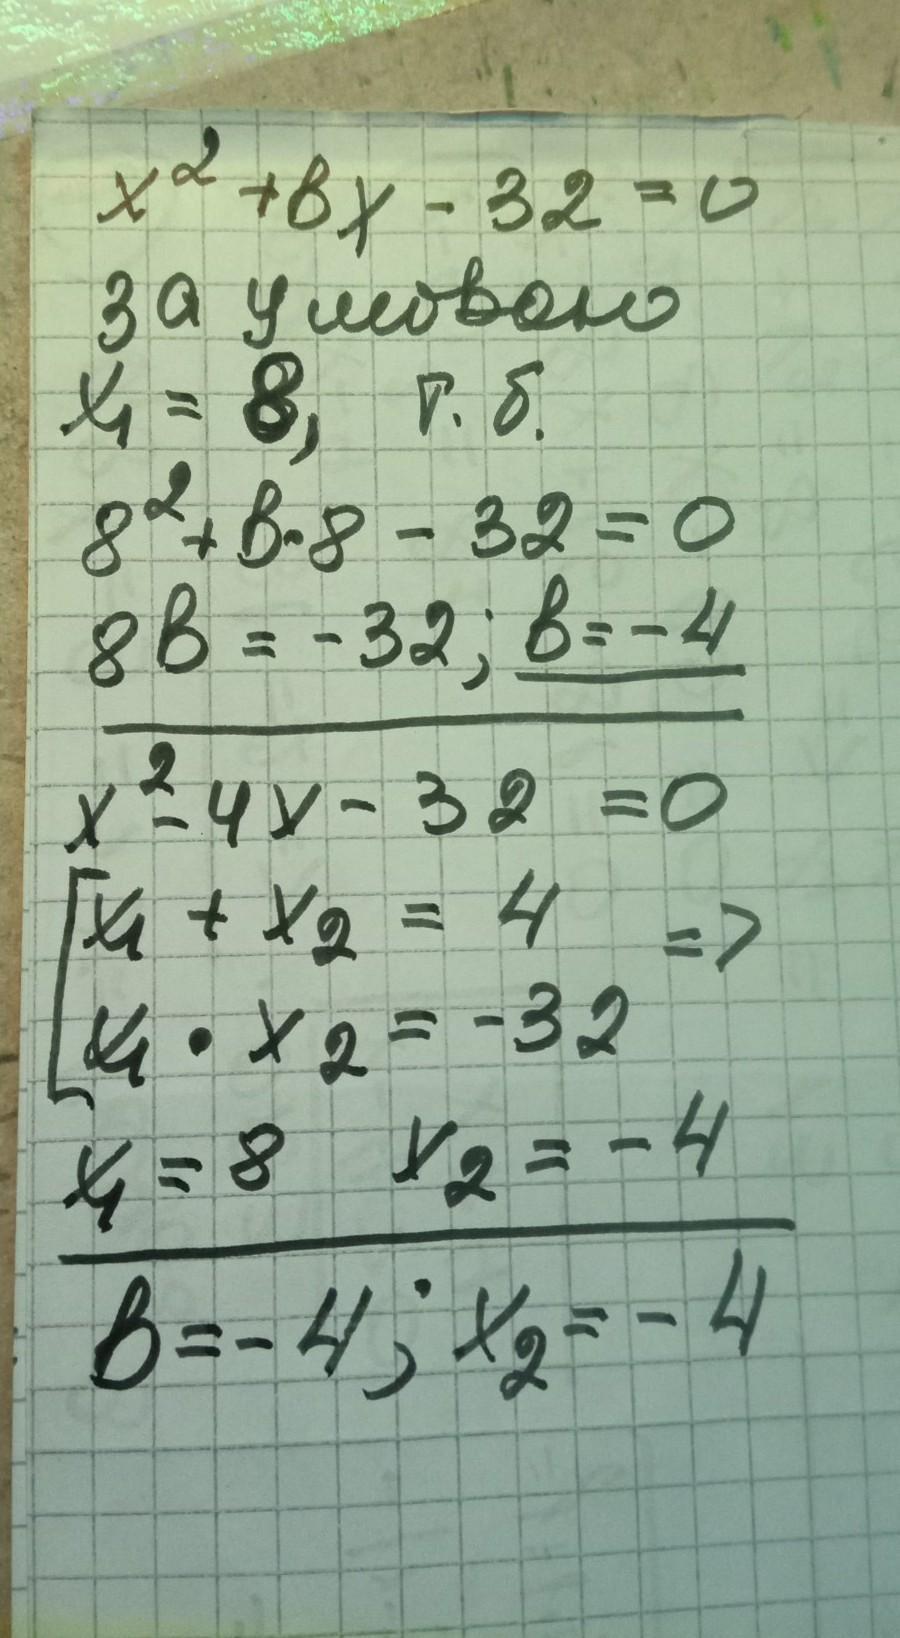 x² + bx - 32 = 0
За умовою
x₁ = 8, т. б.
8² + b·8 - 32 = 0
8b = -32; b = -4
x² - 4x - 32 = 0
x₁ + x₂ = 4 =>
x₁ · x₂ = -32
x₁ = 8 x₂ = -4
b = -4; x₂ = -4